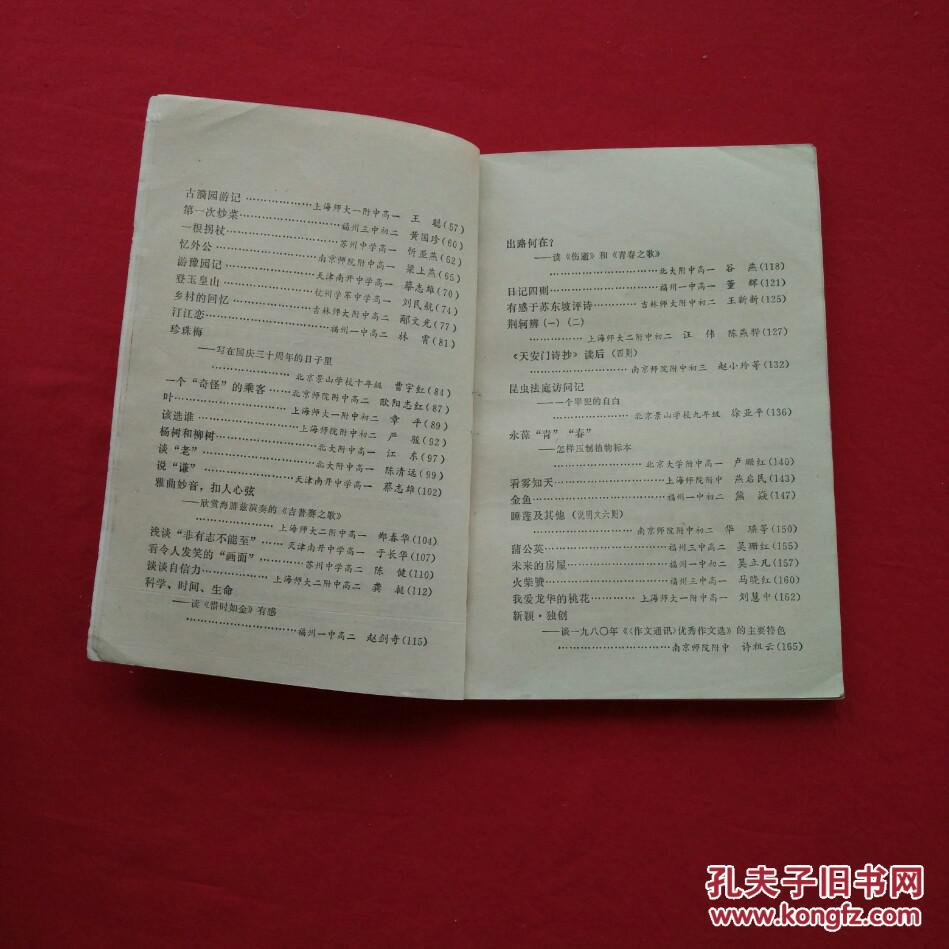 古漪园游记………………上海师大一附中高一 王 聪(57)
第一次炒菜………………福州三中初二 黄国珍(60)
一根拐杖………………苏州中学高一 忻亚燕(62)
忆外公………………南京师院附中高一 梁上燕(65)
游豫园记………………天津南开中学高一 蔡志雄(70)
登玉皇山………………杭州学军中学高一 刘民航(74)
乡村的回忆………………吉林师大附中高二 郦文光(77)
汀江恋………………福州一中高二 林 霄(81)
珍珠梅
——写在国庆三十周年的日子里
………………北京景山学校十年级 曹宇红(84)
一个“奇怪”的乘客………北京师院附中高二 欧阳志红(87)
叶………………上海师大一附中初二 章 平(89)
该选谁………………上海师院附中初二 严 骏(92)
杨树和柳树………………北大附中高一 江 东(97)
谈“老”………………北大附中高一 陈清远(99)
说“谦”………………天津南开中学高一 蔡志雄(102)
雅曲妙音,扣人心弦
——欣赏海菲兹演奏的《吉普赛之歌》
………………上海师大二附中高一 郑春华(104)
浅谈“非有志不能至”………天津南开中学高一 于长华(107)
看令人发笑的“画面”………苏州中学高二 陈 健(110)
谈谈自信力………………上海师大二附中高二 龚 艇(112)
科学、时间、生命
——读《惜时如金》有感
………………福州一中高二 赵剑奇(115)
出路何在?
——谈《伤逝》和《青春之歌》
………………北大附中高一 谷 燕(118)
日记四则………………福州一中高一 董 辉(121)
有感于苏东坡评诗………吉林师大附中初二 王新新(125)
荆轲辨(一)(二)
………………上海师大二附中初二 汪 伟 陈燕桦(127)
《天安门诗抄》读后(四则)
………………南京师院附中初三 赵小玲等(132)
昆虫法庭访问记
——一个罪犯的自白
………………北京景山学校九年级 徐亚平(136)
永葆“青”“春”
——怎样压制植物标本
………………北京大学附中高一 卢珊红(140)
看雾知天………………上海师院附中 燕启民(143)
金鱼………………福州一中初二 熊 焱(147)
睡莲及其他(说明文六则)
………………南京师院附中初二 华 瑛等(150)
蒲公英………………福州三中高二 吴珊红(155)
未来的房屋………………福州一中初二 吴立凡(157)
火柴赞………………福州三中高一 马晓红(160)
我爱龙华的桃花………上海师大一附中高一 刘慧中(162)
新颖·独创
——谈一九八〇年《〈作文通讯〉优秀作文选》的主要特色
………………南京师院附中 许祖云(165)
孔夫子旧书网
www.kongfz.com